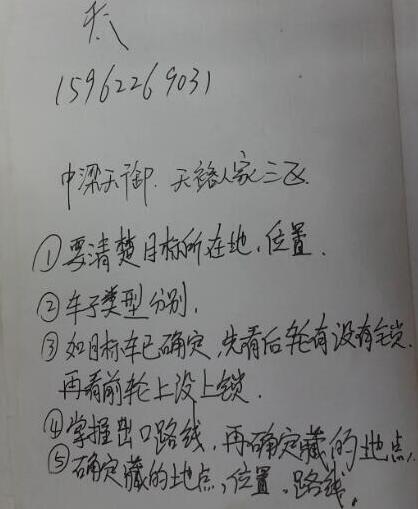 15962269031
中梁天御.天裕人家三区.
①要清楚目标所在地,位置.
②车子类型分别,
③如目标车已确定,先看后轮有没有锁.
再看前轮上没上锁.
④掌握出口路线,再确定藏的地点.
⑤确定藏的地点,位置.路线.